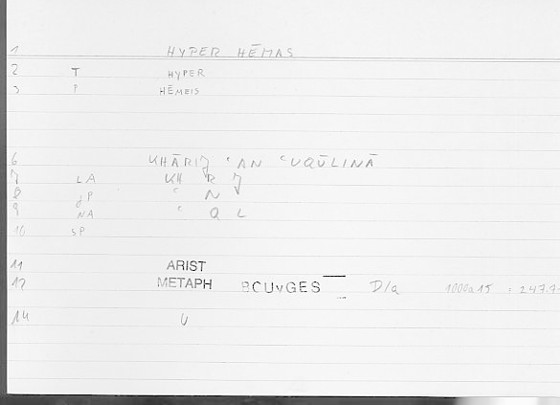 1 HYPER HĒMAS
2 T HYPER
3 P HĒMEIS
6 KHĀRIJ ʿAN ʿUQŪLINĀ
7 LA KH R J
8 JP ʿ N
9 NA ʿ Q L
10 SP
11 ARIST
12 METAPH BOUYGES D/a 1000a15 = 247.7
14 U